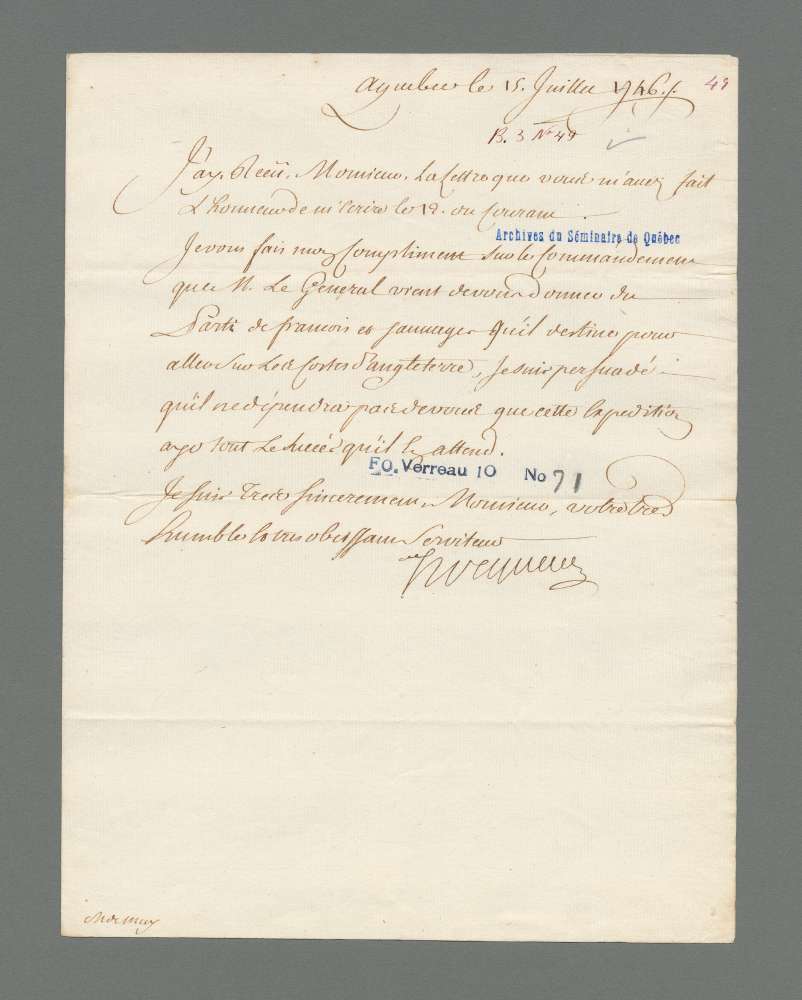 a quebec le 15. Juillet 1746 /.
49
B. 3 N° 49
J'ay, Reçû, Monsieur, La Lettre que vous m'avez fait
L'honneur de m'ecrire le 12. du Courant.
Archives du Séminaire de Québec
Je vous fais mon Compliment sur le Commandement
que M. Le Général vient de vous donner du
Parti de francois et sauvages qu'il destine pour
aller sur Les Costes d'angleterre, Je suis persuadé
qu'il ne dépendra pas de vous que cette Expedition
aye tout Le succès qu'il En attend.
FO. Verreau 10 No 71
Je suis Tres sincerement, Monsieur, votre tres
humble et tres obeissant Serviteur
hocquart
M de muy